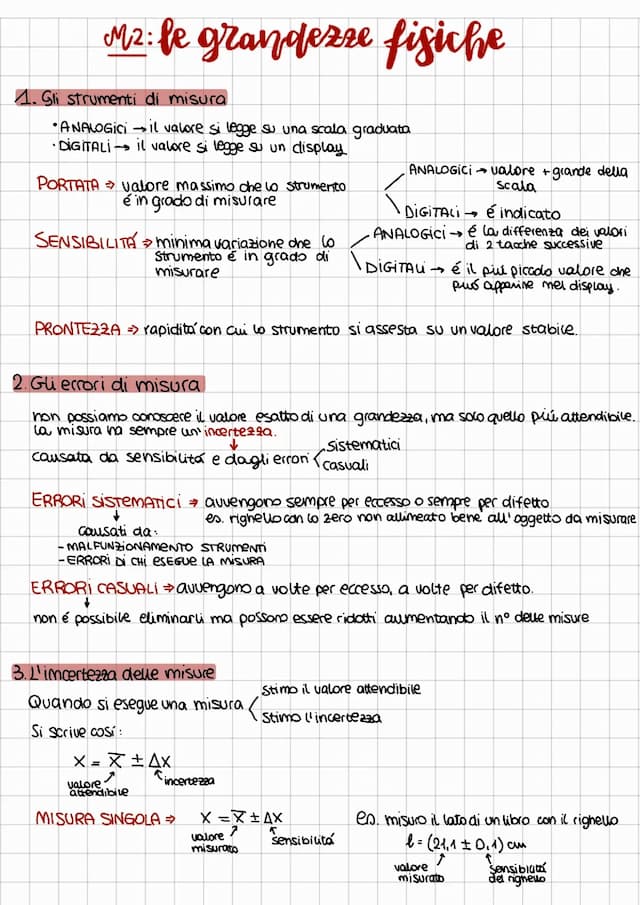 M2: le grandezze fisiche
1. Gli strumenti di misura
• ANALOGICI → il valore si legge su una scala graduata
• DIGITALI → il valore si legge su un display
PORTATA ⇒ valore massimo che lo strumento
é in grado di misurare
ANALOGICI → valore + grande della
scala
DIGITALI → é indicato
SENSIBILITÁ ⇒ minima variazione che lo
strumento é in grado di
misurare
ANALOGICI → é la differenza dei valori
di 2 tacche successive
DIGITALI → é il piu piccolo valore che
puó apparire nel display.
PRONTEZZA ⇒ rapiditá con cui lo strumento si assesta su un valore stabile.
2. Gli errori di misura
non possiamo conoscere il valore esatto di una grandezza, ma solo quello piú attendibile.
La misura ha sempre un' incertezza.
↓
causata da sensibilitá e dagli errori
sistematici
casuali
ERRORI SISTEMATICI → avvengono sempre per eccesso o sempre per difetto
es. righello con lo zero non allineato bene all'oggetto da misurare
↓
causati da:
- MALFUNZIONAMENTO STRUMENTI
- ERRORI DI CHI ESEGUE LA MISURA
ERRORI CASUALI ⇒ avvengono a volte per eccesso, a volte per difetto.
↓
non é possibile eliminarli ma possono essere ridotti aumentando il n° delle misure
3. L'incertezza delle misure
Quando si esegue una misura
stimo il valore attendibile
stimo l'incertezza
Si scrive cosí:
x = x̅ ± Δx
valore
attendibile
incertezza
MISURA SINGOLA ⇒ x = x̅ ± Δx
valore
misurato
sensibilitá
es. misuro il lato di un libro con il righello
l = (21,1 ± 0,1) cm
valore
misurato
sensibilitá
del righello